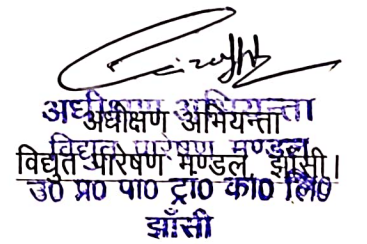 अधीक्षण अभियन्ता
अधीक्षण अभियन्ता
विद्युत पारेषण मण्डल
विद्युत पारेषण मण्डल, झाँसी।
उ0 प्र0 पा0 ट्रा0 का0 लि0
झाँसी